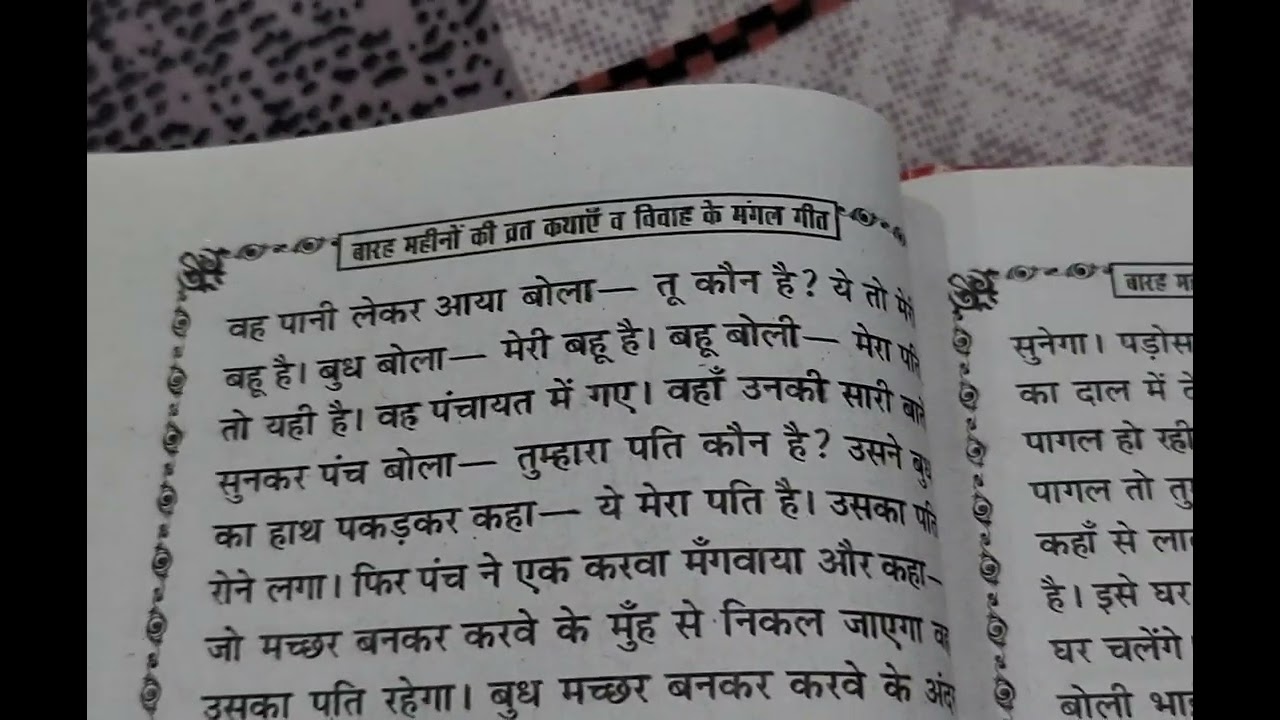 बारह महीनों की व्रत कथाएँ व विवाह के मंगल गीत
वह पानी लेकर आया बोला— तू कौन है? ये तो मेरी
बहू है। बुध बोला— मेरी बहू है। बहू बोली— मेरा पति
तो यही है। वह पंचायत में गए। वहाँ उनकी सारी बातें
सुनकर पंच बोला— तुम्हारा पति कौन है? उसने बुध
का हाथ पकड़कर कहा— ये मेरा पति है। उसका पति
रोने लगा। फिर पंच ने एक करवा मँगवाया और कहा—
जो मच्छर बनकर करवे के मुँह से निकल जाएगा वह
उसका पति रहेगा। बुध मच्छर बनकर करवे के अंदर
बारह
सुनेगा। पड़ोस
का दाल में
पागल हो रही
पागल तो
कहाँ से
है। इसे घर
घर चलेंगे
बोली